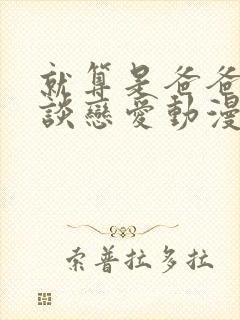 就算是爸爸
談戀愛動漫
索普拉多拉